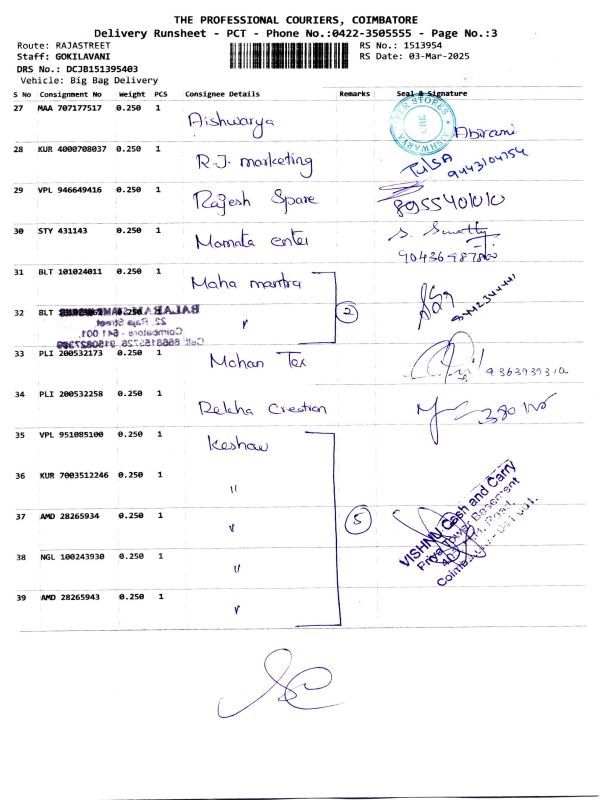 THE PROFESSIONAL COURIERS, COIMBATORE
Delivery Runsheet - PCT - Phone No.:0422-3505555 - Page No.:3
Route: RAJASTREET
RS No.: 1513954
Staff: GOKILAVANI
RS Date: 03-Mar-2025
DRS No.: DCJB151395403
Vehicle: Big Bag Delivery
S No Consignment No Weight PCS Consignee Details Remarks Seal & Signature
27 MAA 707177517 0.250 1 Aishwarya Abirami
STORES CBE AISHWARYA
28 KUR 4000708037 0.250 1 R.J. marketing TULSA
9443104754
29 VPL 946649416 0.250 1 Rajesh Spare 8955401010
30 STY 431143 0.250 1 Mamata enter
31 BLT 101024011 0.250 1 Maha mantra
32 BLT 0.250 1 〃 2
BALARAM
22, Raja Street
Coimbatore - 641 001.
33 PLI 200532173 0.250 1 Mohan Tex
34 PLI 200532258 0.250 1 Rekha Creation
35 VPL 951085100 0.250 1 Keshav
36 KUR 7003512246 0.250 1 〃
37 AMD 28265934 0.250 1 〃 5
VISHNU Cash and Carry
Priya Tower Basement
38 NGL 100243930 0.250 1 〃
39 AMD 28265943 0.250 1 〃